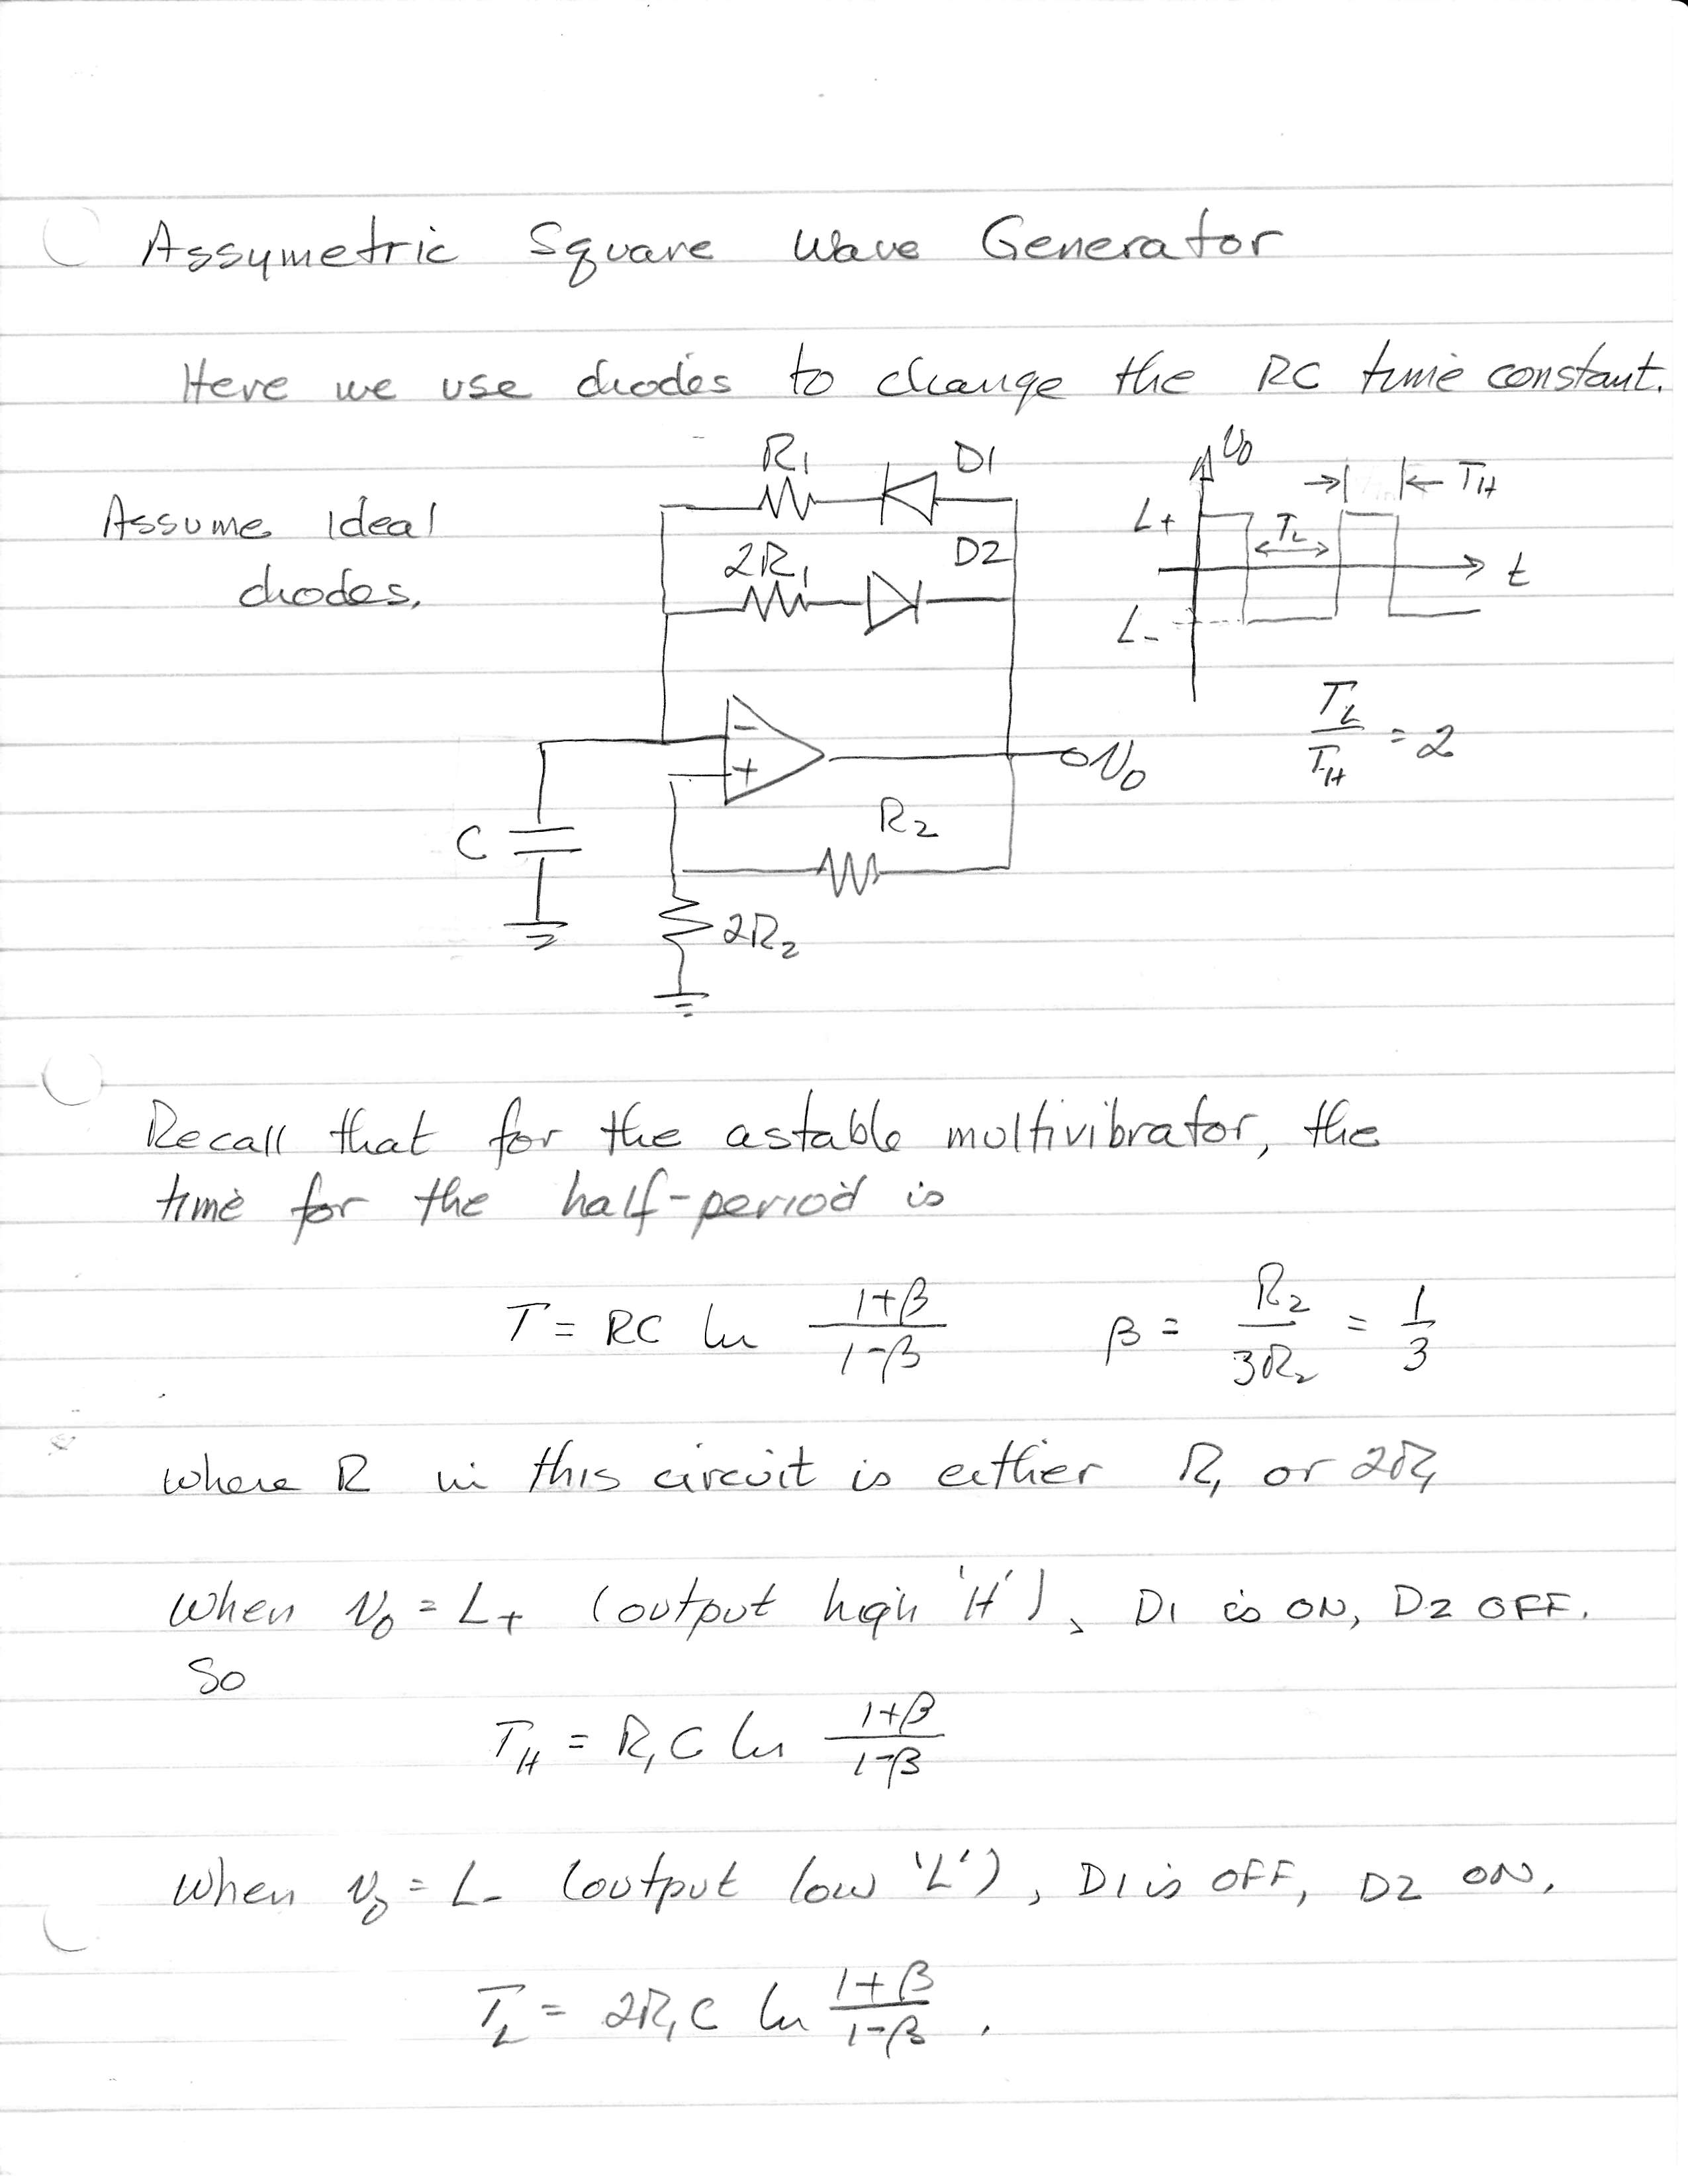 Assymetric Square Wave Generator
Here we use diodes to change the RC time constant.
Assume ideal
diodes.
R₁ D1
2R₁ D2
- + 
C
R₂
2R₂
v₀
v₀
L+
L-
T_L
→| |← T_H
t
T_L/T_H = 2
Recall that for the astable multivibrator, the
time for the half-period is
T = RC ln (1+β)/(1-β) β = R₂/3R₂ = 1/3
where R in this circuit is either R₁ or 2R₁
When v₀ = L+ (output high 'H'), D1 is ON, D2 OFF.
So
T_H = R₁C ln (1+β)/(1-β)
When v₀ = L- (output low 'L'), D1 is OFF, D2 ON.
T_L = 2R₁C ln (1+β)/(1-β).